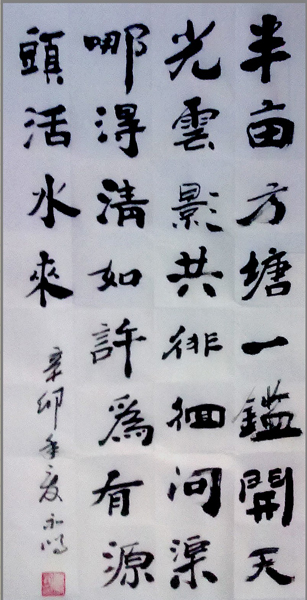 半亩方塘一鑑開天
光雲影共徘徊问渠
哪得清如許為有源
頭活水來
辛卯年夏